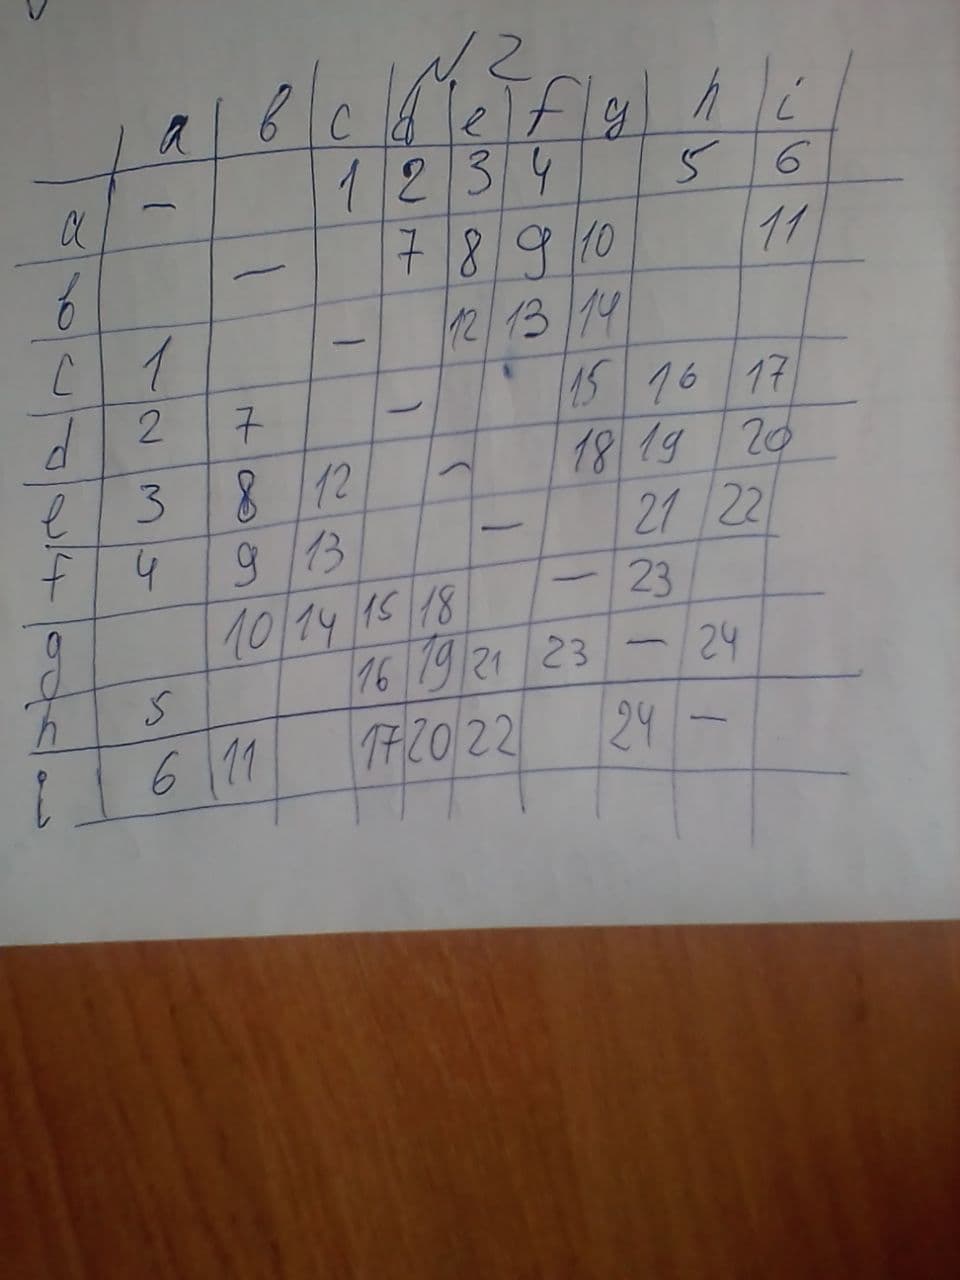 № 2
a b c d e f g h i
a – 1 2 3 4 5 6
b – 7 8 9 10 11
c 1 – 12 13 14
d 2 7 – 15 16 17
e 3 8 12 – 18 19 20
f 4 9 13 – 21 22
g 10 14 15 18 – 23
h 5 16 19 21 23 – 24
i 6 11 17 20 22 24 –